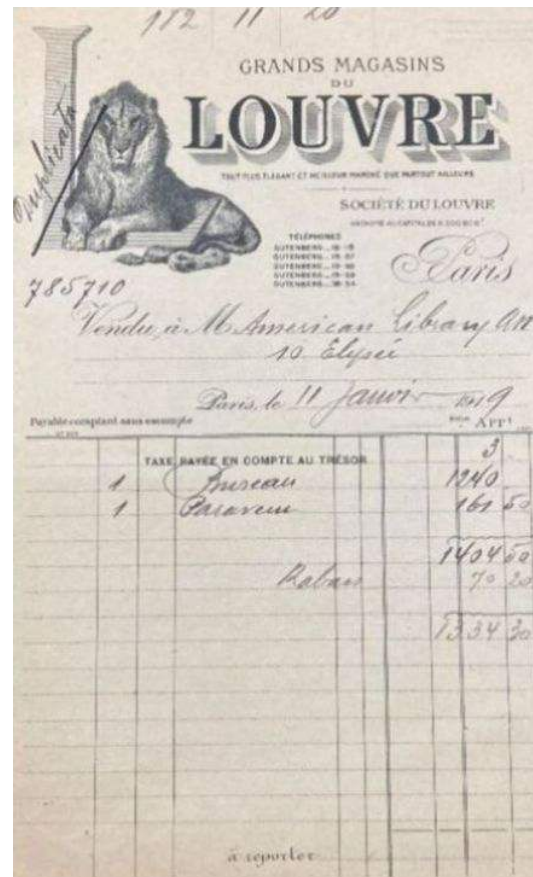 182 11 20
GRANDS MAGASINS
DU
LOUVRE
Duplicata
TOUT PLUS ÉLÉGANT ET MEILLEUR MARCHÉ QUE PARTOUT AILLEURS
SOCIÉTÉ DU LOUVRE
TÉLÉPHONES
GUTENBERG
GUTENBERG
GUTENBERG
GUTENBERG
GUTENBERG
Paris
785710
Vendu, à M American Library Ass
10 Elysée
Paris, le 11 Janvier 1919
Payable comptant sans escompte
ARRt
3
TAXE PAYÉE EN COMPTE AU TRÉSOR
1 Bureau 1240
1 Paravent 161 50
1404 50
Rabais 70 20
1334 30
à reporter